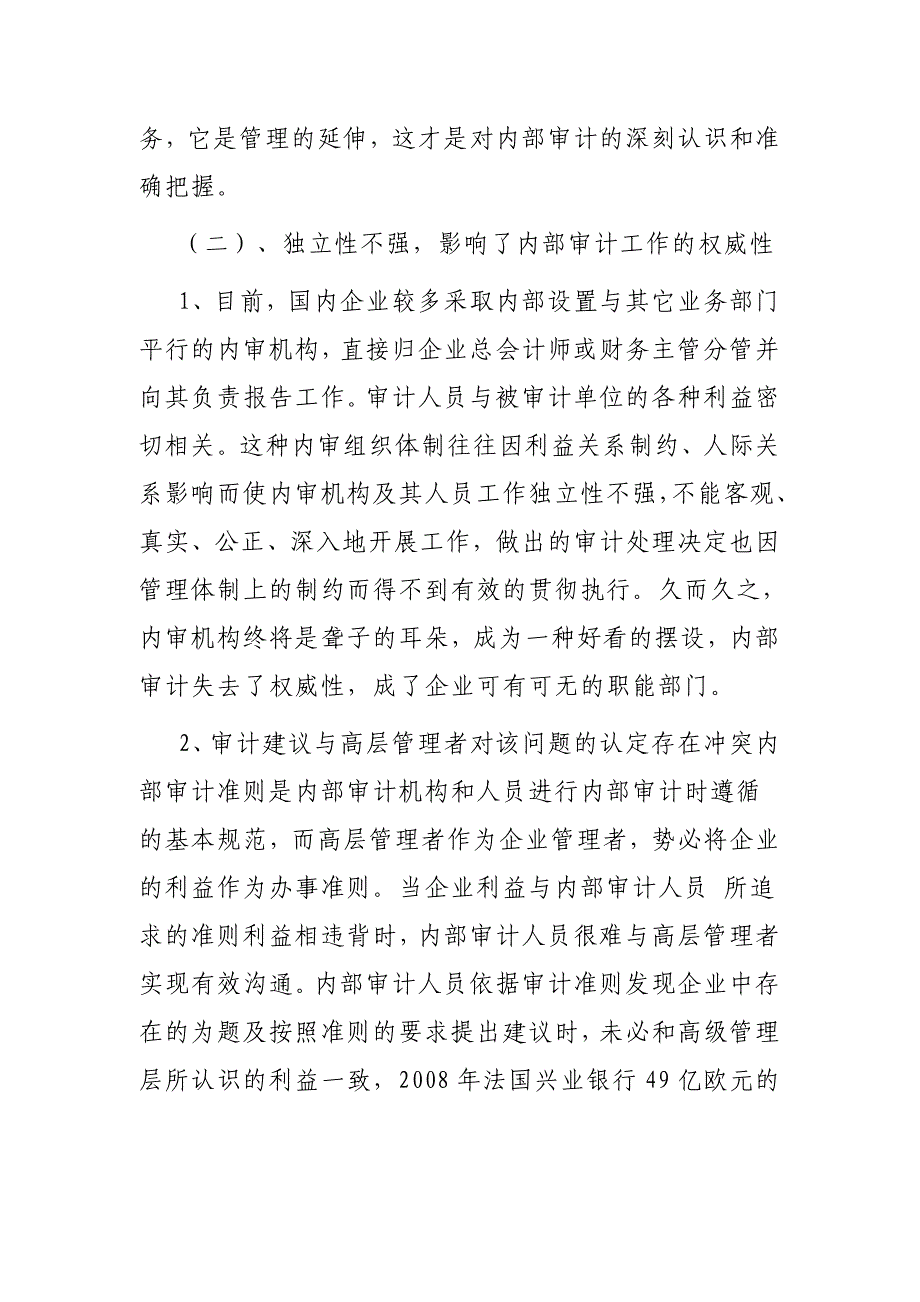 务，它是管理的延伸，这才是对内部审计的深刻认识和准
确把握。
（二）、独立性不强，影响了内部审计工作的权威性
1、目前，国内企业较多采取内部设置与其它业务部门
平行的内审机构，直接归企业总会计师或财务主管分管并
向其负责报告工作。审计人员与被审计单位的各种利益密
切相关。这种内审组织体制往往因利益关系制约、人际关
系影响而使内审机构及其人员工作独立性不强，不能客观、
真实、公正、深入地开展工作，做出的审计处理决定也因
管理体制上的制约而得不到有效的贯彻执行。久而久之，
内审机构终将是聋子的耳朵，成为一种好看的摆设，内部
审计失去了权威性，成了企业可有可无的职能部门。
2、审计建议与高层管理者对该问题的认定存在冲突内
部审计准则是内部审计机构和人员进行内部审计时遵循
的基本规范，而高层管理者作为企业管理者，势必将企业
的利益作为办事准则。当企业利益与内部审计人员 所追
求的准则利益相违背时，内部审计人员很难与高层管理者
实现有效沟通。内部审计人员依据审计准则发现企业中存
在的为题及按照准则的要求提出建议时，未必和高级管理
层所认识的利益一致，2008 年法国兴业银行 49 亿欧元的